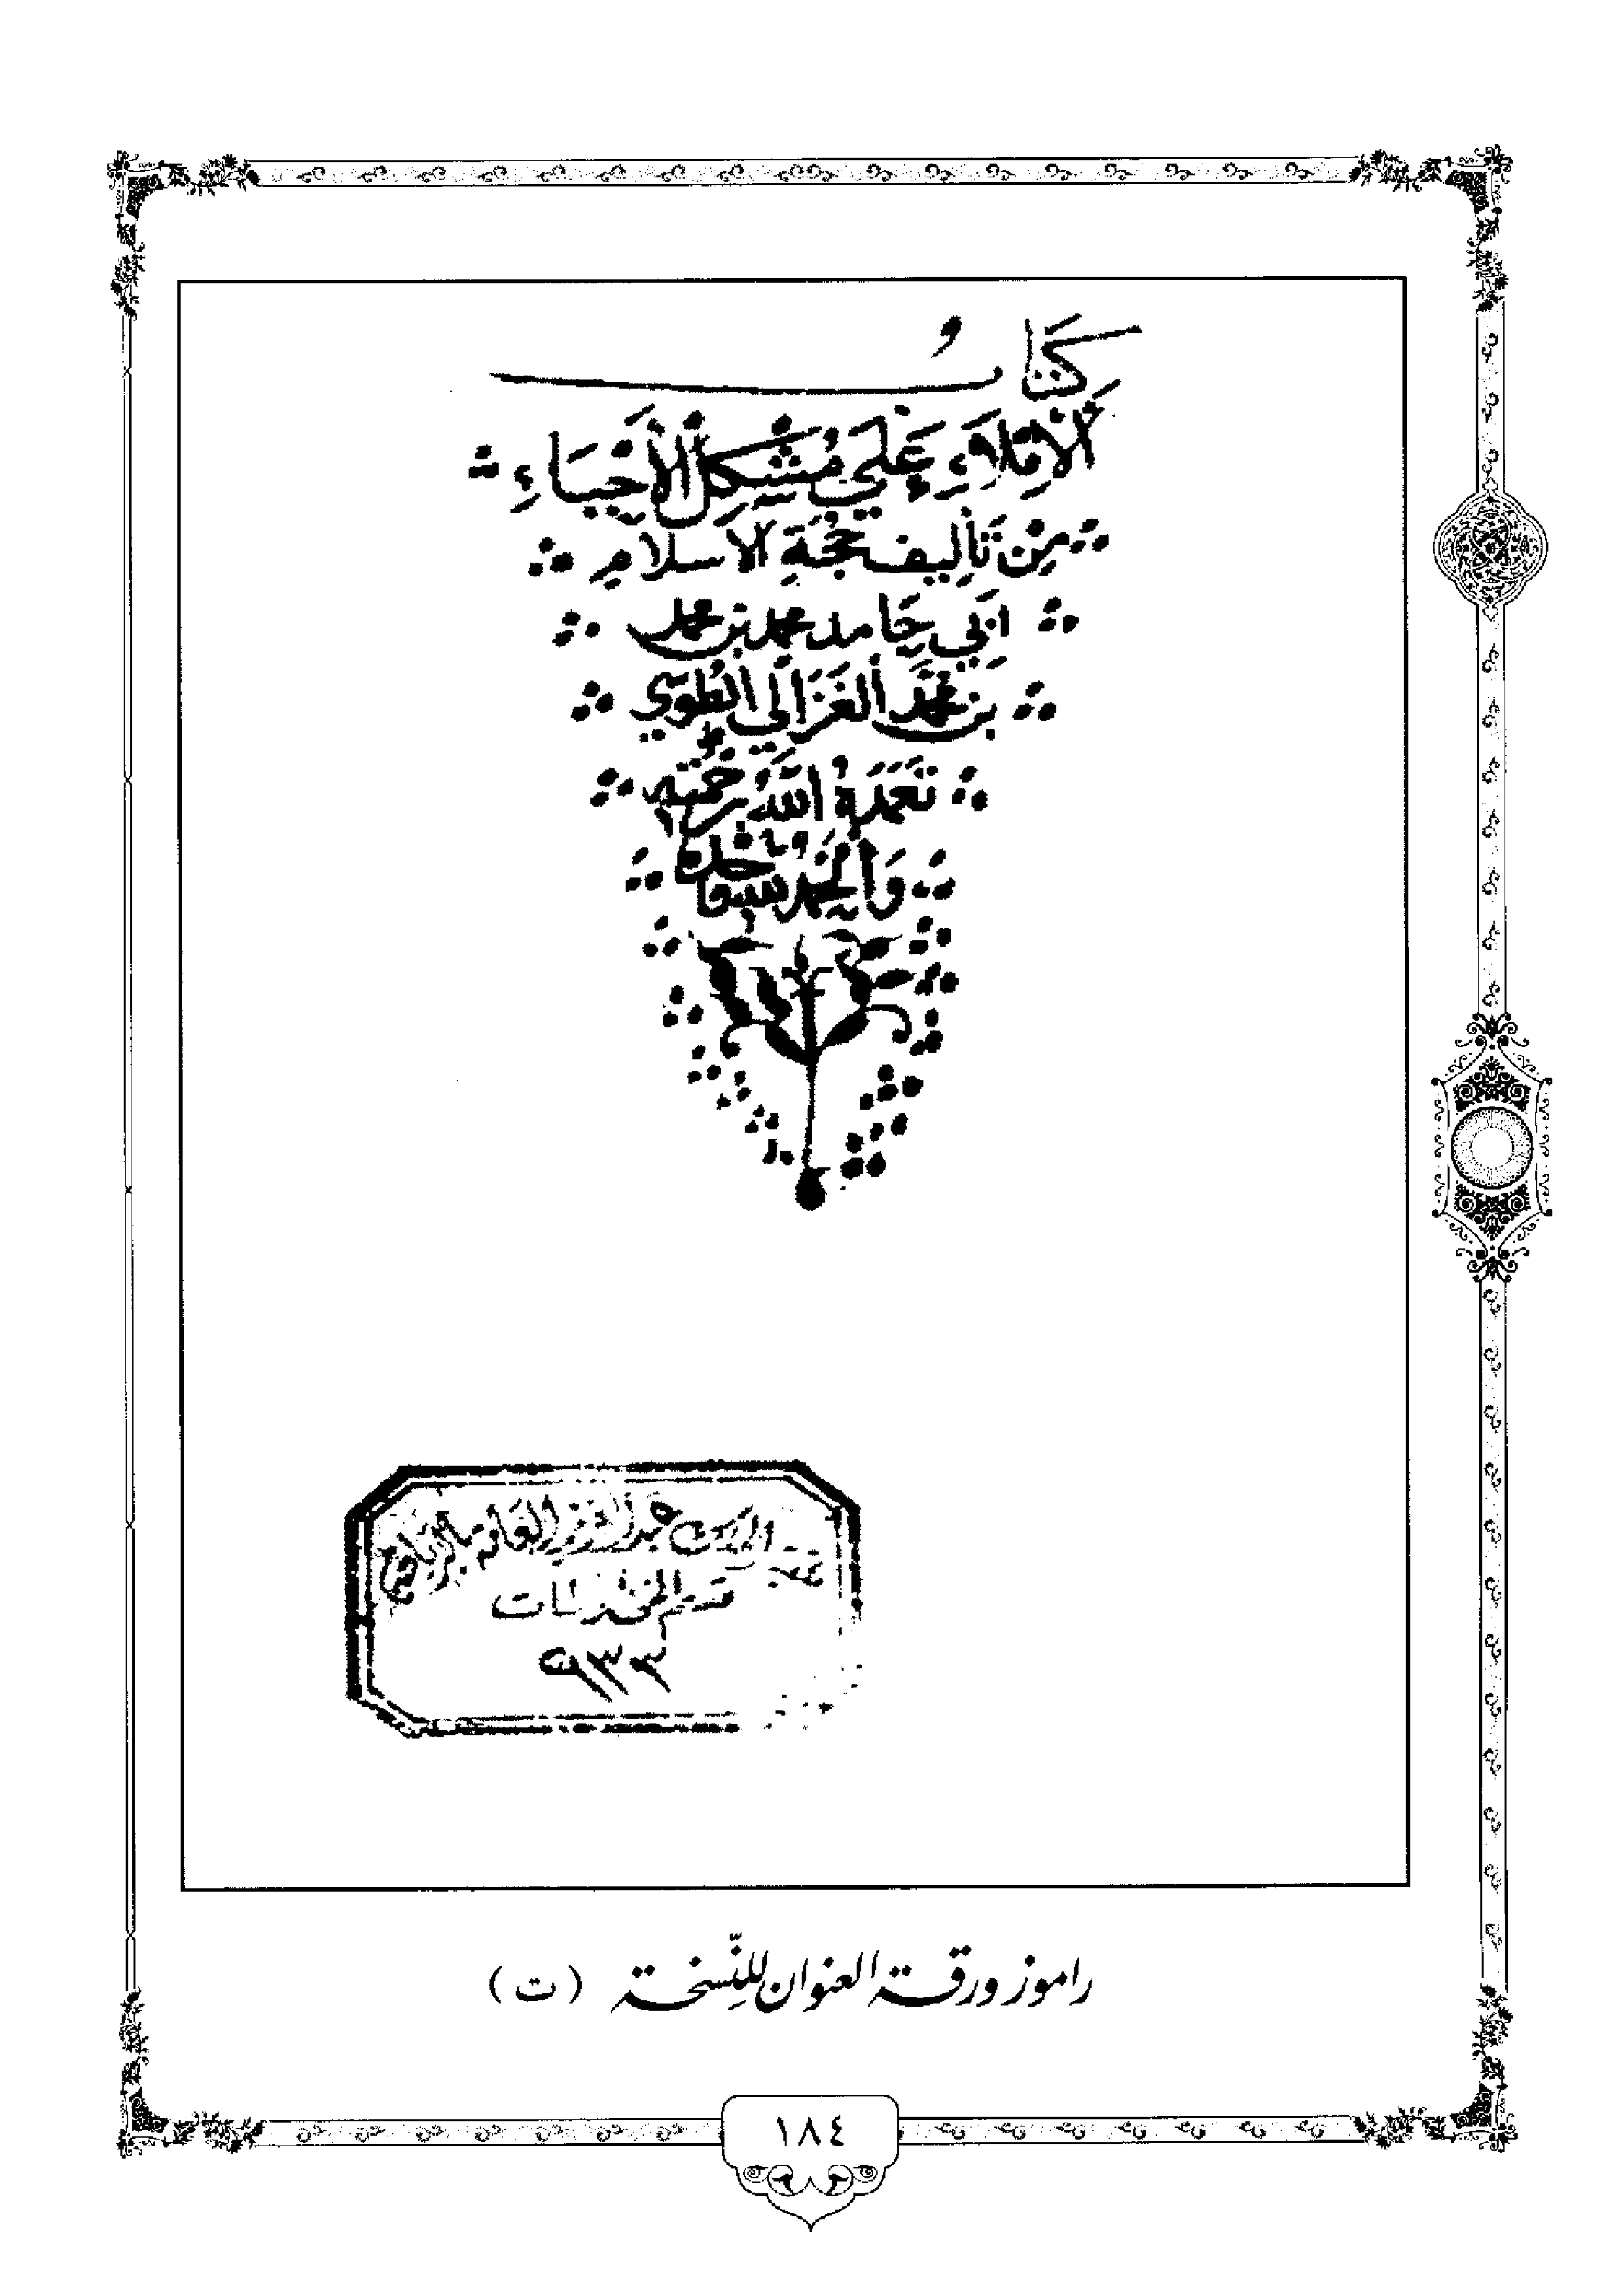 كِتَابُ
الإِملَاءِ عَلَى مُشْكِلِ الأَحْيَاءِ
مِنْ تَأليف حُجَّةِ الاسلام
ابَي حَامد محمد بن محمد
بن محمّد الغَزَالي الطُوسّي
تَغَمَدَهُ اللّهُ برحمته
وَالحَمْدُ لله وَحْدَهُ
الملك عبد العزيز العامة بالرياض
قسم المخطوطات
٩٣٣
راموز ورقة العنوان للنّسخة (ت)
١٨٤